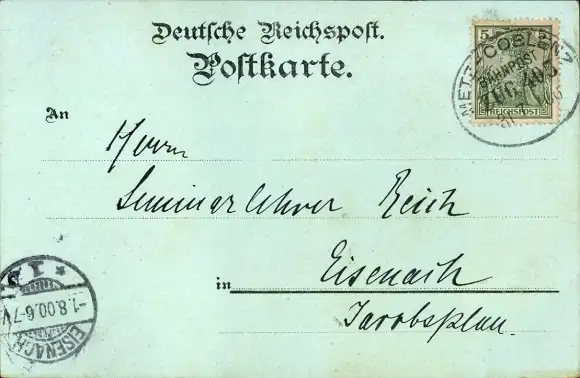 Deutsche Reichspost.
Postkarte.
5
METZ-COBLENZ
BAHNPOST
ZUG 405
31 7 00
REICHSPOST
An
Herrn
Seminarlehrer Reich
in Eisenach
Jacobsplan.
* 1 *
-1.8.00.6-7V
EISENACH